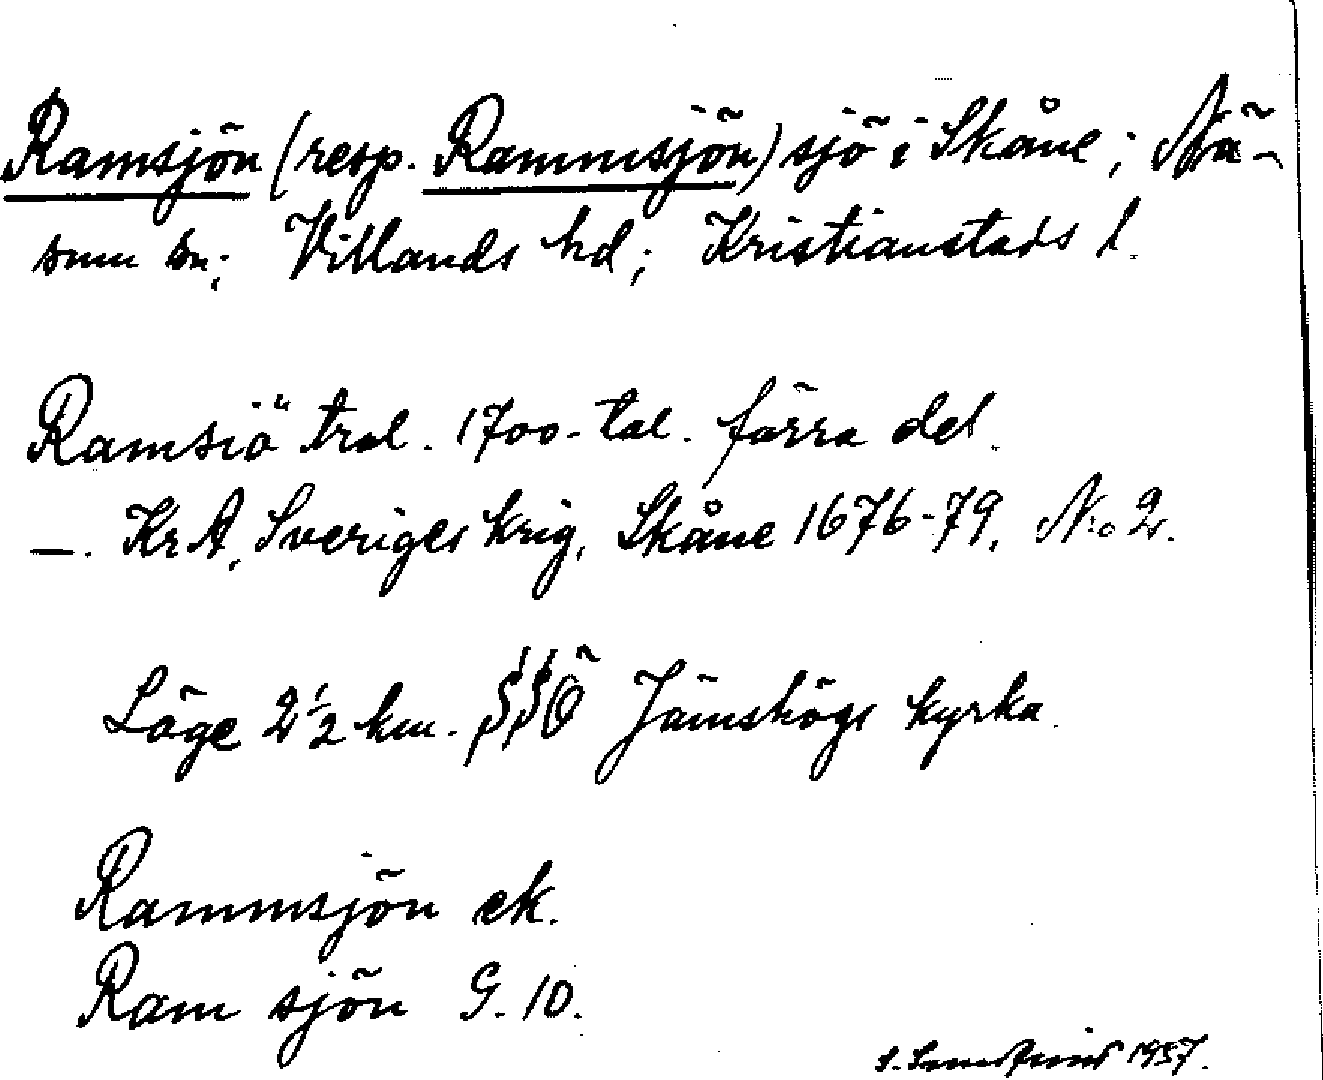 Ramsjön (resp. Rammsjön) sjö i Skåne; Nä-
sum sn; Villands hd; Kristianstads l.
Ramsiö trol. 1700-tal. förra del.
—. KrA, Sveriges krig, Skåne 1676-79, N:o 2.
Läge 2½ km. SSÖ Jämshögs kyrka.
Rammsjön ek.
Ram sjön G. 10.
1957.